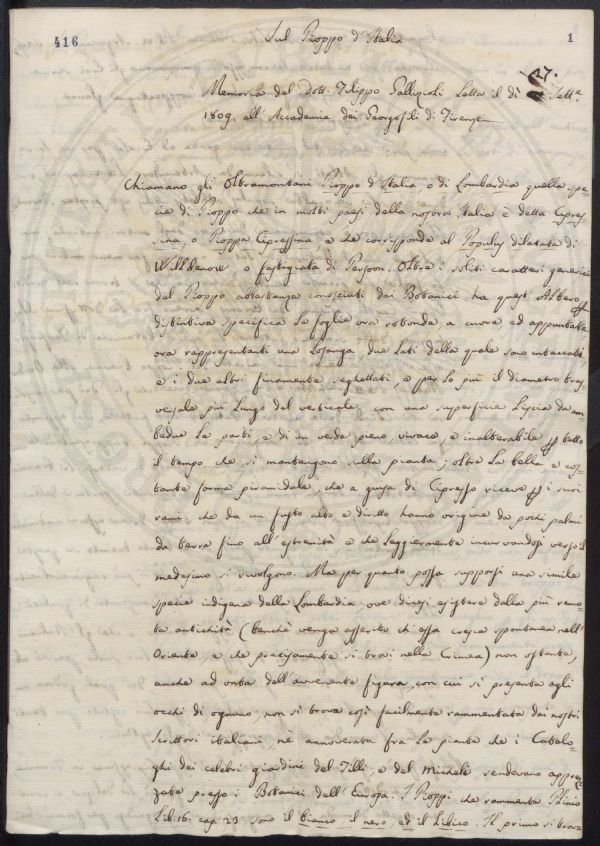 416
Sul Pioppo d'Italia
1
Memoria del Dott. Filippo Gallizioli Letta il dì 27. Sette
1809. all'Accademia dei Georgofili di Firenze
Chiamano gli Oltramontani Pioppo d'Italia, o di Lombardia quella spe-
cie di Pioppo che in molti paesi della nostra Italia è detta Cipres-
sina, o Pioppa Cipressina, e che corrisponde al Populus dilatata di
Willdenow, o fastigiata di Persoon. Oltre i soliti caratteri generici
del Pioppo abbastanza conosciuti dai Botanici ha quest'Albero
distintiva specifica Le foglie ora rotonde a cuore ed appuntate
ora rappresentanti una Losanga due Lati della quale sono intaccati,
e i due altri finamente seghettati, e per lo più il diametro tras-
versale più Lungo del verticale, con una superficie Liscia da am-
bedue Le parti, e di un verde pieno vivace, e inalterabile tutto
il tempo che si mantengono sulla pianta; oltre La bella e cos-
tante forma piramidale, che a guisa di Cipresso riceve i suoi
rami, che da un fusto alto, e diritto hanno origine da pochi palmi
da terra fino all'estremità, e che Leggiermente incurvandosi verso il
medesimo si rivolgono. Ma per quanto possa supporsi una simile
specie indigena della Lombardia, ove dicesi esistere dalla più remo-
ta antichità (benchè venga asserito ch'essa cresca spontanea nell'
Oriente, e che precisamente si trovi nella Crimea) non ostante,
anche ad onta dell'avvenente figura, con cui si presenta agli
occhi di ognuno, non si trova così facilmente rammentata dai nostri
scrittori italiani, nè annoverata fra Le piante che i Catalo-
ghi dei celebri giardini del Tilli, e del Micheli rendevano apprez-
zate presso i Botanici dell'Europa. I Pioppi che rammenta Plinio
Lib. 16. cap. 23. sono il bianco il nero, ed il Libico. Il primo si trova